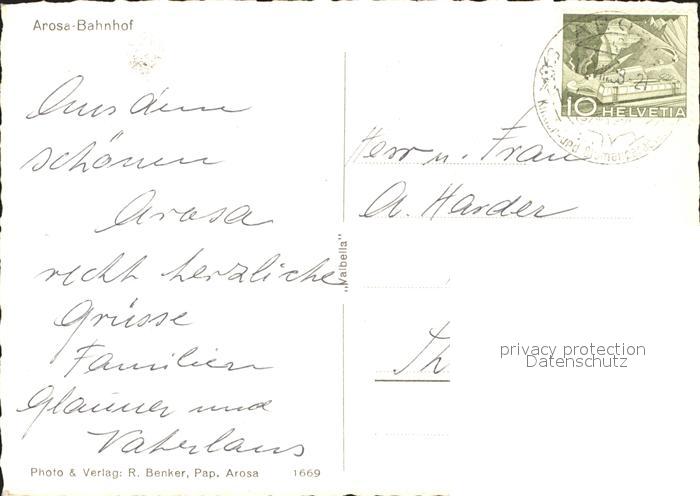 Arosa-Bahnhof
Aus dem
schönen
Arosa
recht herzliche
Grüsse
Familien
Glauner und
Vaterlaus
Photo & Verlag: R. Benker, Pap. Arosa 1669
"Valbella"
10 HELVETIA
Herr u. Frau
A. Harder
Th
privacy protection
Datenschutz